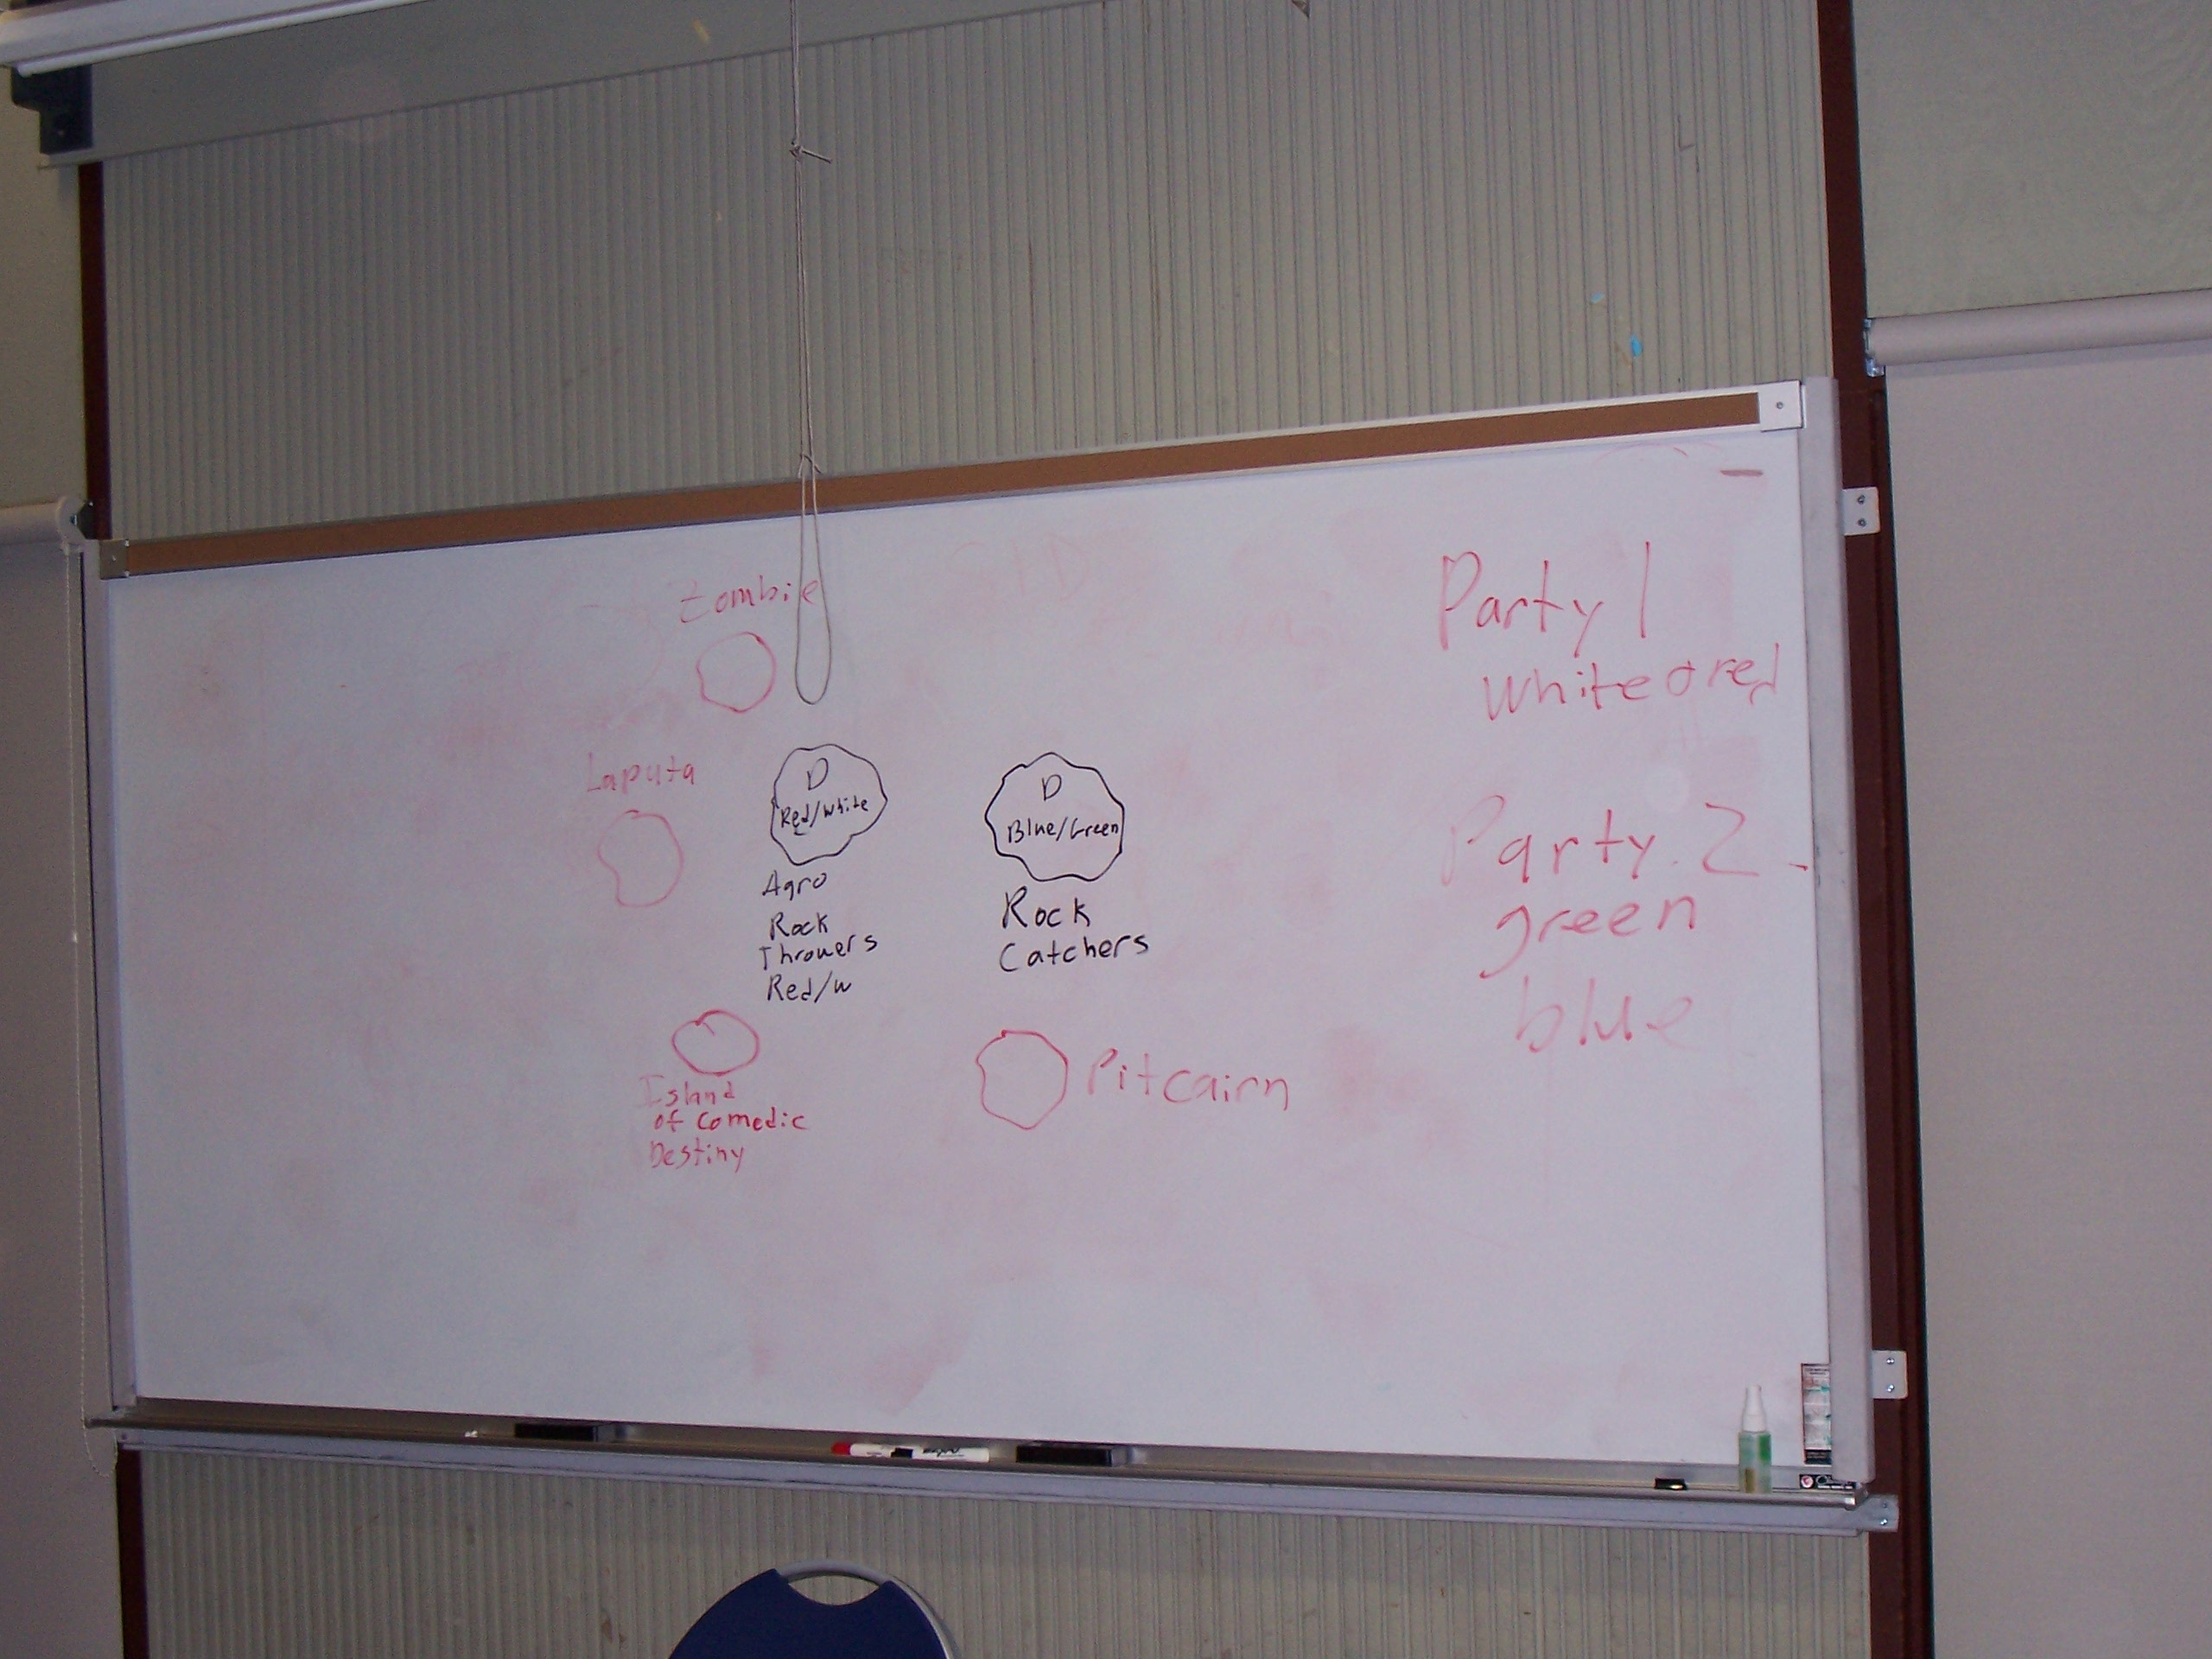 Zombie
Laputa
D
Red/White
Agro
Rock
Throwers
Red/w
D
Blue/Green
Rock
Catchers
Island
of Comedic
Destiny
Pitcairn
Party 1
white & red
Party 2
green
blue